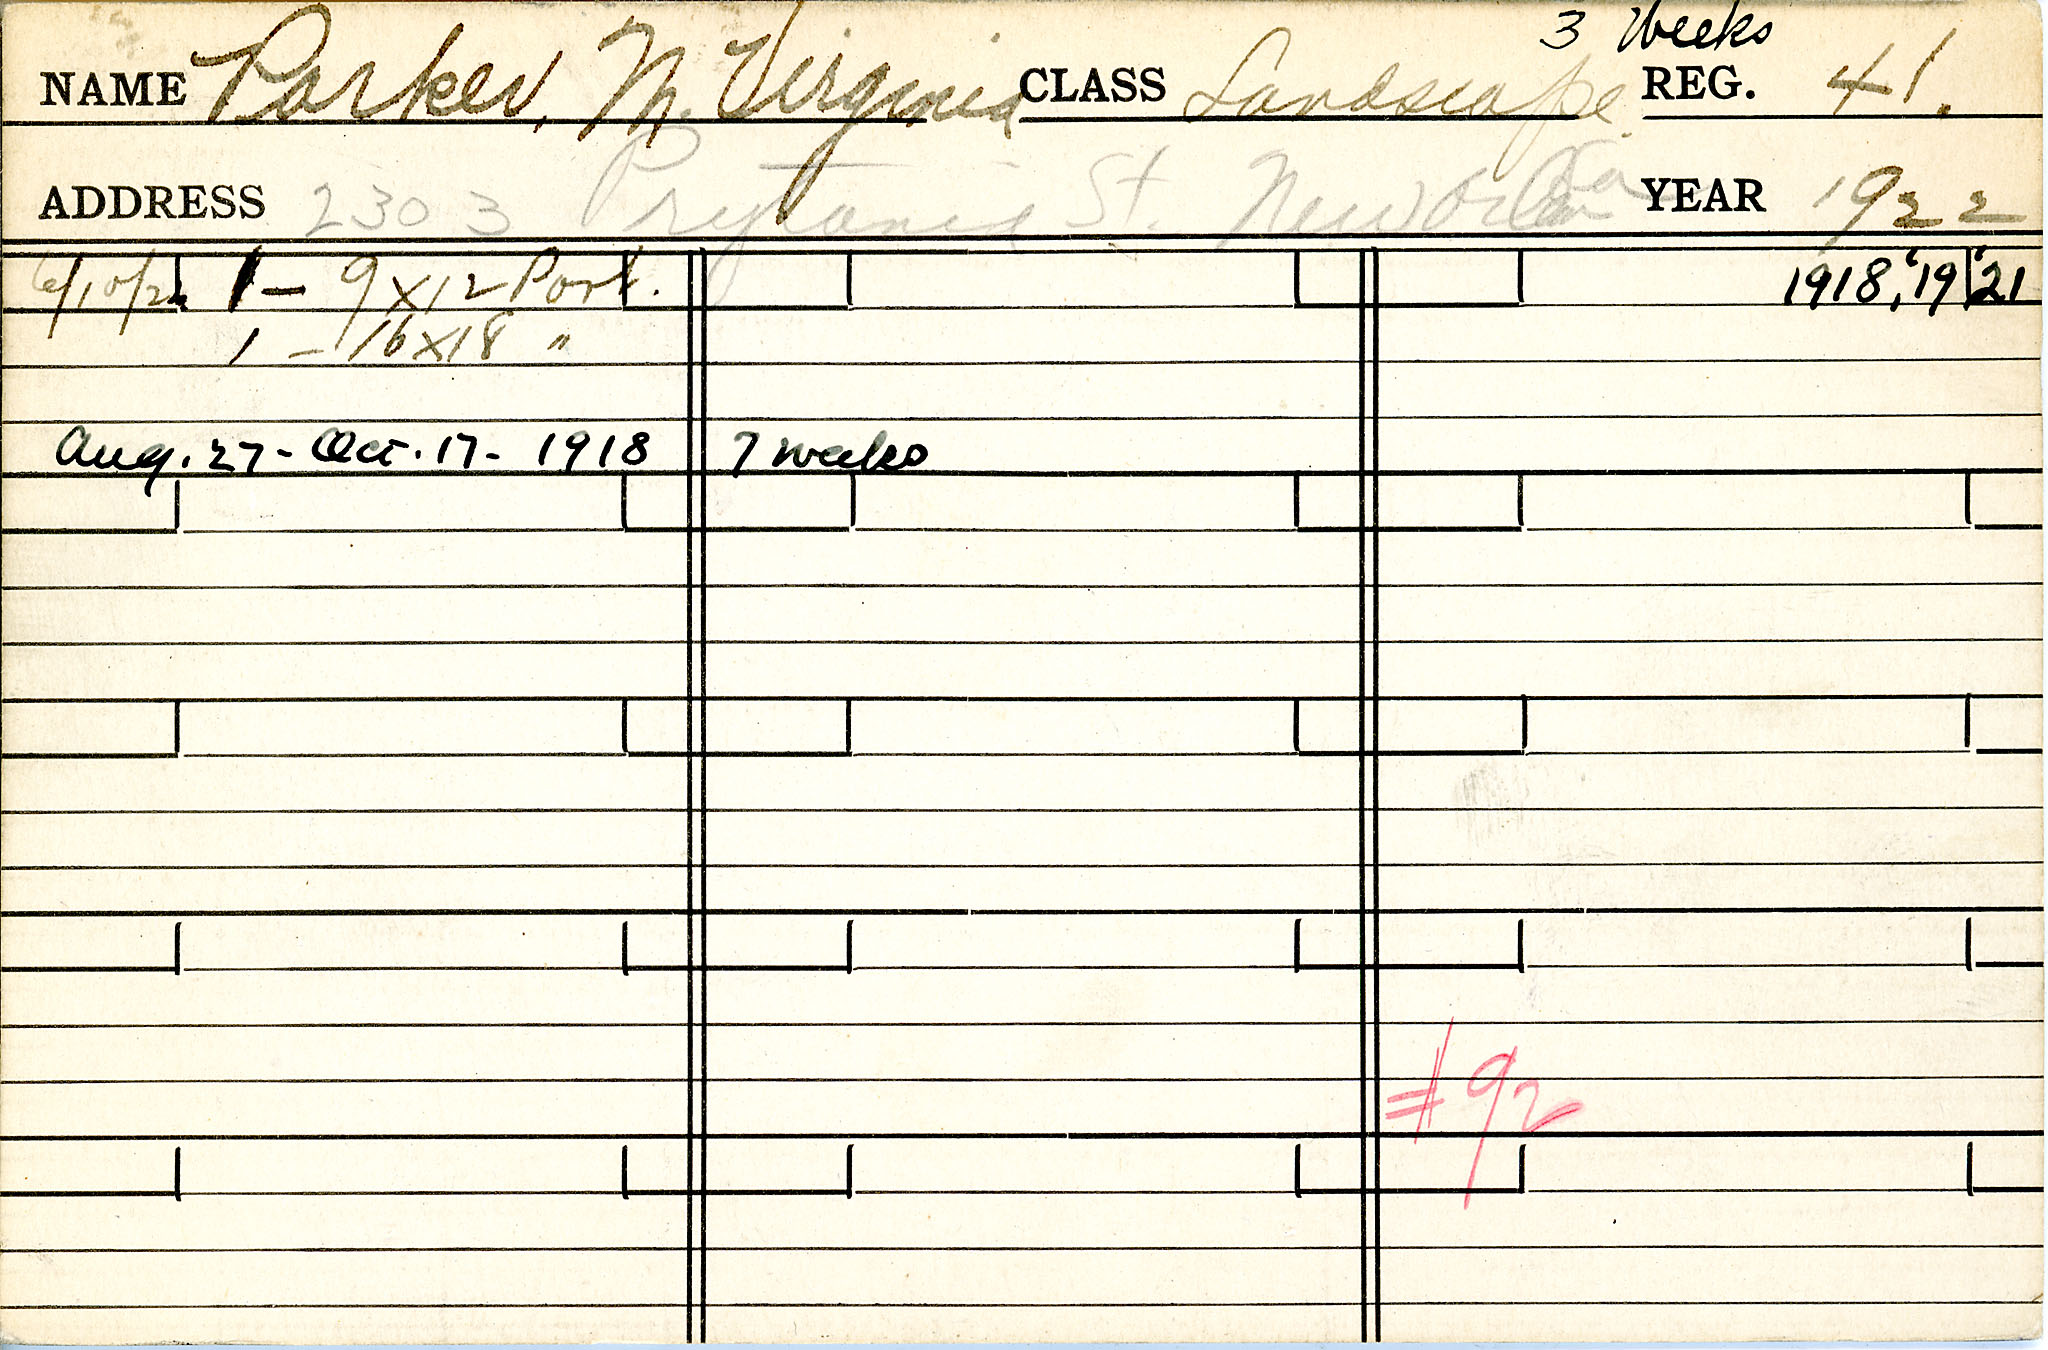 3 Weeks
NAME Parker, M. Virginia CLASS Landscape. REG. 41.
ADDRESS 2303 Prytania St. New Orleans La YEAR 1922
6/10/22 1 - 9 X 12 Port. 1918, '19 '21
1 - 16 X 18 "
Aug. 27 - Oct. 17 - 1918 7 weeks
#92